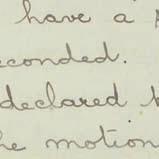 have a
econded.
declared
he motion